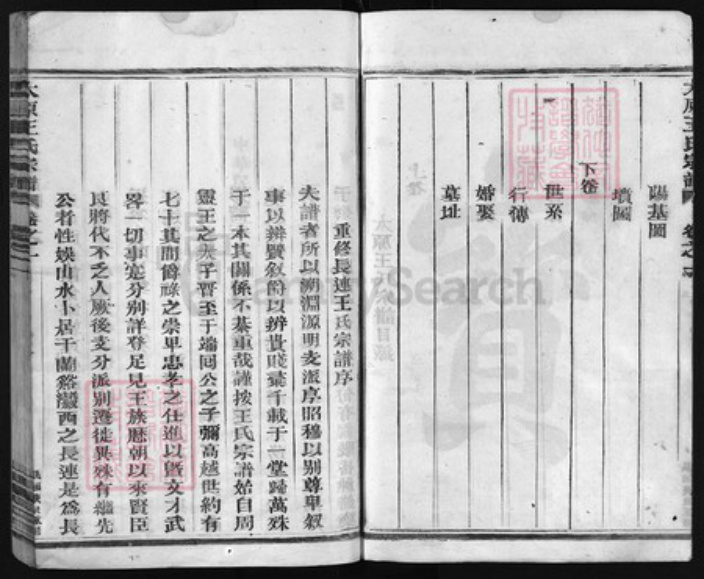 太原王氏宗譜 卷之首
陽基圖
墳圖
下卷
世系
行傳
婚娶
墓址
重修長連王氏宗譜序
夫譜者所以溯淵源明支派序昭穆以別尊卑叙
事以辨賢叙爵以辨貴賤彙千載于一堂歸萬殊
于一本其關係不綦重哉謹按王氏宗譜始自周
靈王之太子晋至于端囘公之子彌高越世約有
七十其間爵祿之崇卑忠孝之仕進以曁文才武
畧一切事寔分別詳登足見王族歷朝以來賢臣
良將代不乏人厥後支分派別遷徙異殊有繼先
公者性娛山水卜居于蘭谿瀫西之長連是爲長
太原王氏宗譜 卷之一
FamilySearch